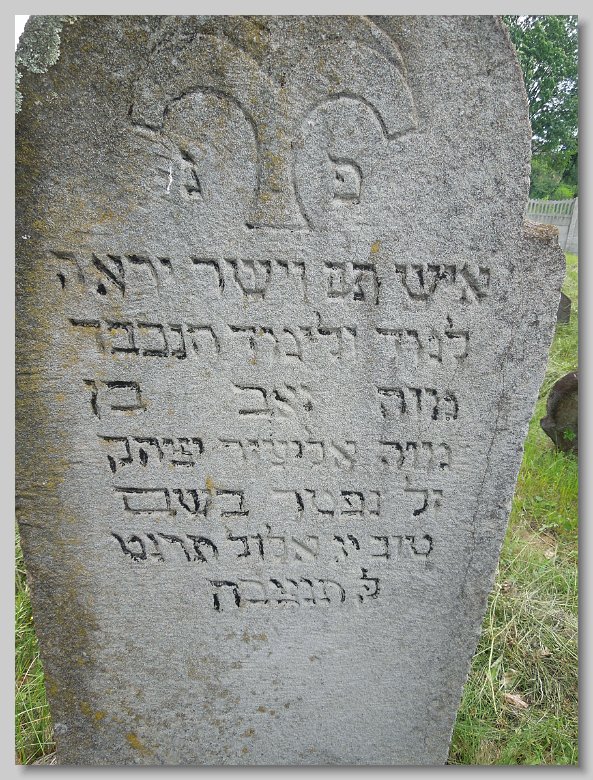 פ נ
איש תם וישר יראה
למוד ולימוד הנכבד
מוה זאב בן
מוה יצחק
זל נפטר בשם
טוב יו אלול תרנט
ל תנצבה